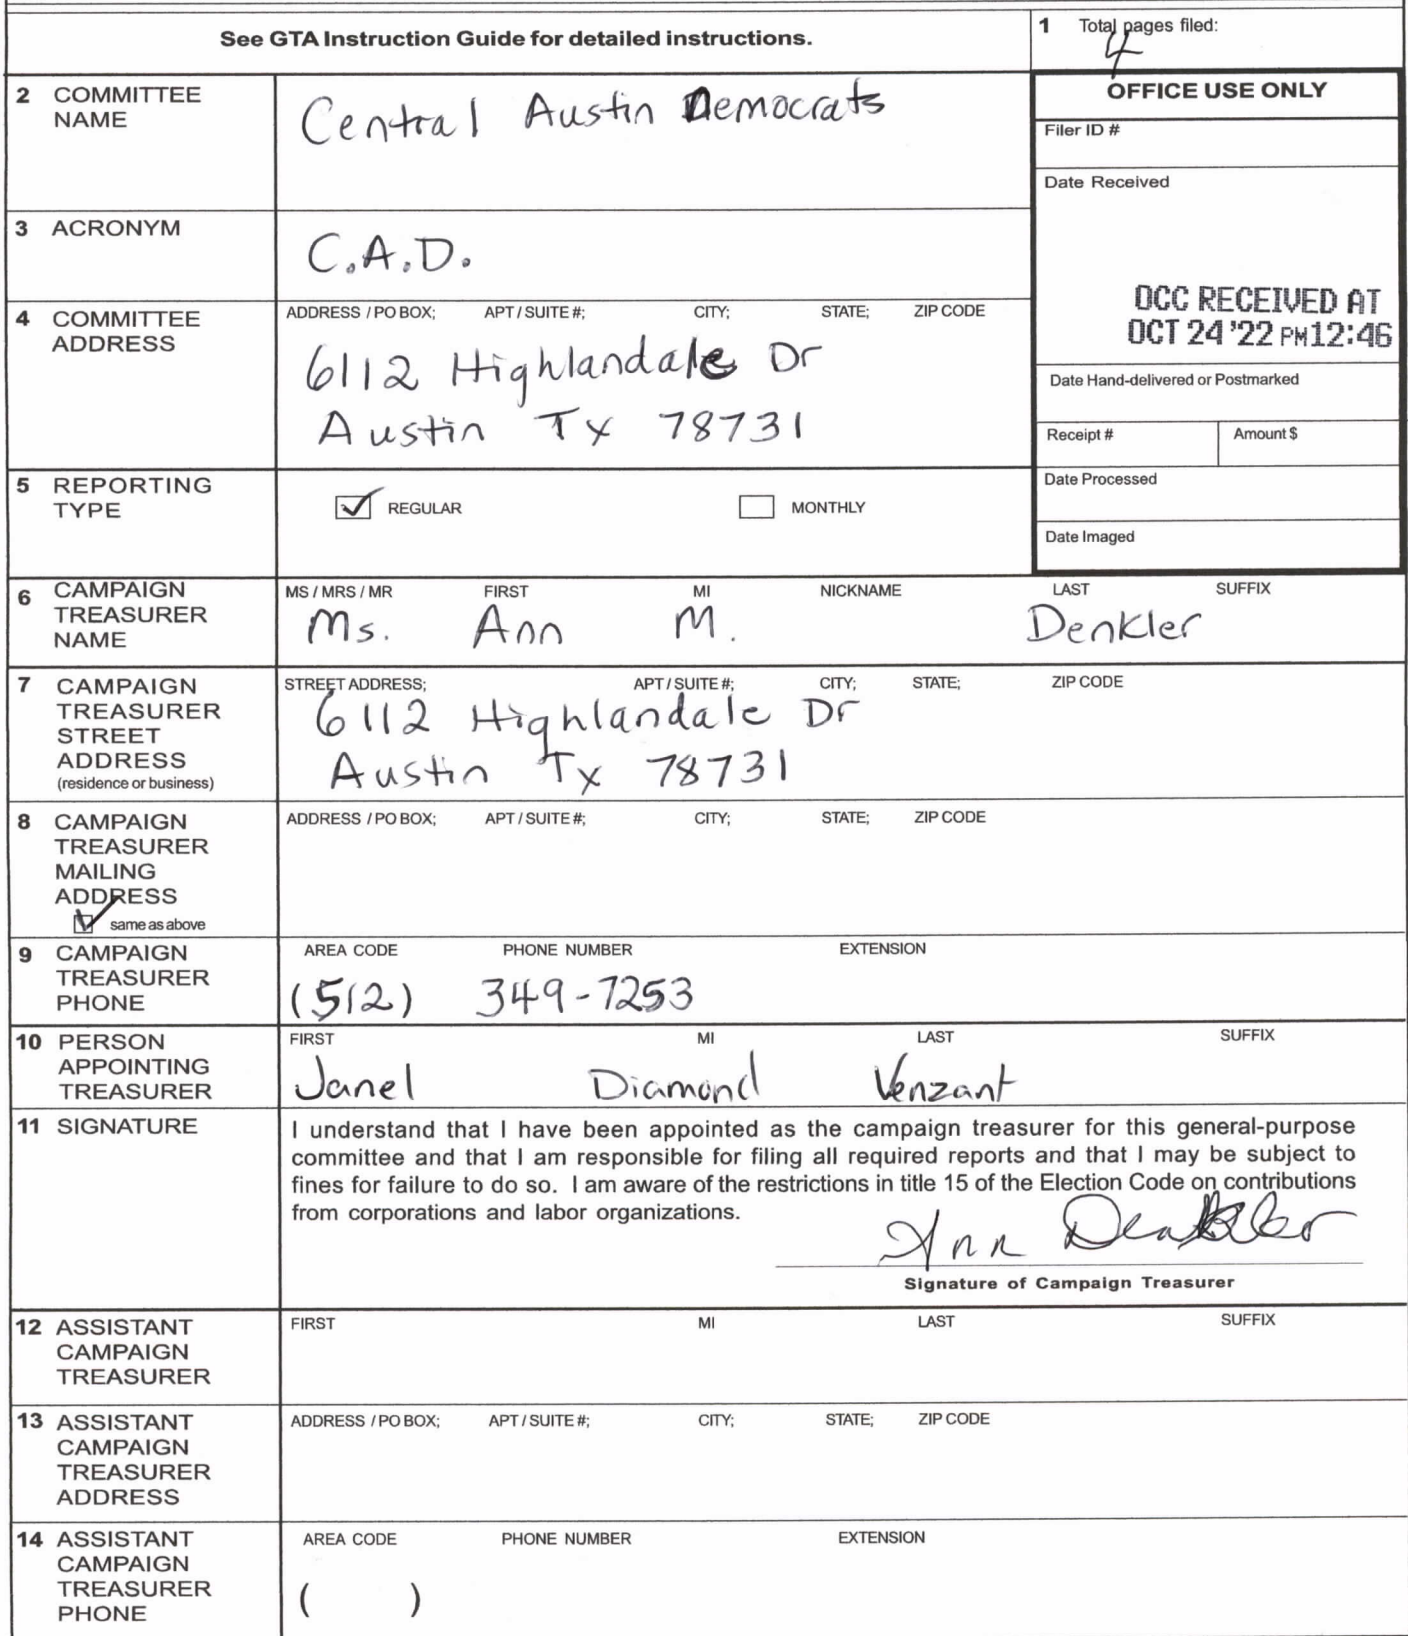 See GTA Instruction Guide for detailed instructions.
1 Total pages filed:
4
2 COMMITTEE NAME
Central Austin Democrats
OFFICE USE ONLY
Filer ID #
Date Received
3 ACRONYM
C.A.D.
OCC RECEIVED AT
OCT 24 '22 PM12:46
4 COMMITTEE ADDRESS
ADDRESS / PO BOX; APT / SUITE #; CITY; STATE; ZIP CODE
6112 Highlandale Dr
Austin Tx 78731
Date Hand-delivered or Postmarked
Receipt # Amount $
Date Processed
Date Imaged
5 REPORTING TYPE
REGULAR MONTHLY
6 CAMPAIGN TREASURER NAME
MS / MRS / MR FIRST MI NICKNAME LAST SUFFIX
Ms. Ann M. Denkler
7 CAMPAIGN TREASURER STREET ADDRESS
(residence or business)
STREET ADDRESS; APT / SUITE #; CITY; STATE; ZIP CODE
6112 Highlandale Dr
Austin Tx 78731
8 CAMPAIGN TREASURER MAILING ADDRESS
same as above
ADDRESS / PO BOX; APT / SUITE #; CITY; STATE; ZIP CODE
9 CAMPAIGN TREASURER PHONE
AREA CODE PHONE NUMBER EXTENSION
(512) 349-7253
10 PERSON APPOINTING TREASURER
FIRST MI LAST SUFFIX
Janel Diamond Venzant
11 SIGNATURE
I understand that I have been appointed as the campaign treasurer for this general-purpose
committee and that I am responsible for filing all required reports and that I may be subject to
fines for failure to do so. I am aware of the restrictions in title 15 of the Election Code on contributions
from corporations and labor organizations.
Ann Denkler
Signature of Campaign Treasurer
12 ASSISTANT CAMPAIGN TREASURER
FIRST MI LAST SUFFIX
13 ASSISTANT CAMPAIGN TREASURER ADDRESS
ADDRESS / PO BOX; APT / SUITE #; CITY; STATE; ZIP CODE
14 ASSISTANT CAMPAIGN TREASURER PHONE
AREA CODE PHONE NUMBER EXTENSION
( )